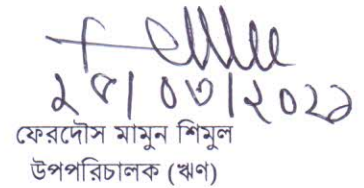 ২৮/০৩/২০২১
ফেরদৌস মামুন শিমুল
উপপরিচালক (ঋণ)